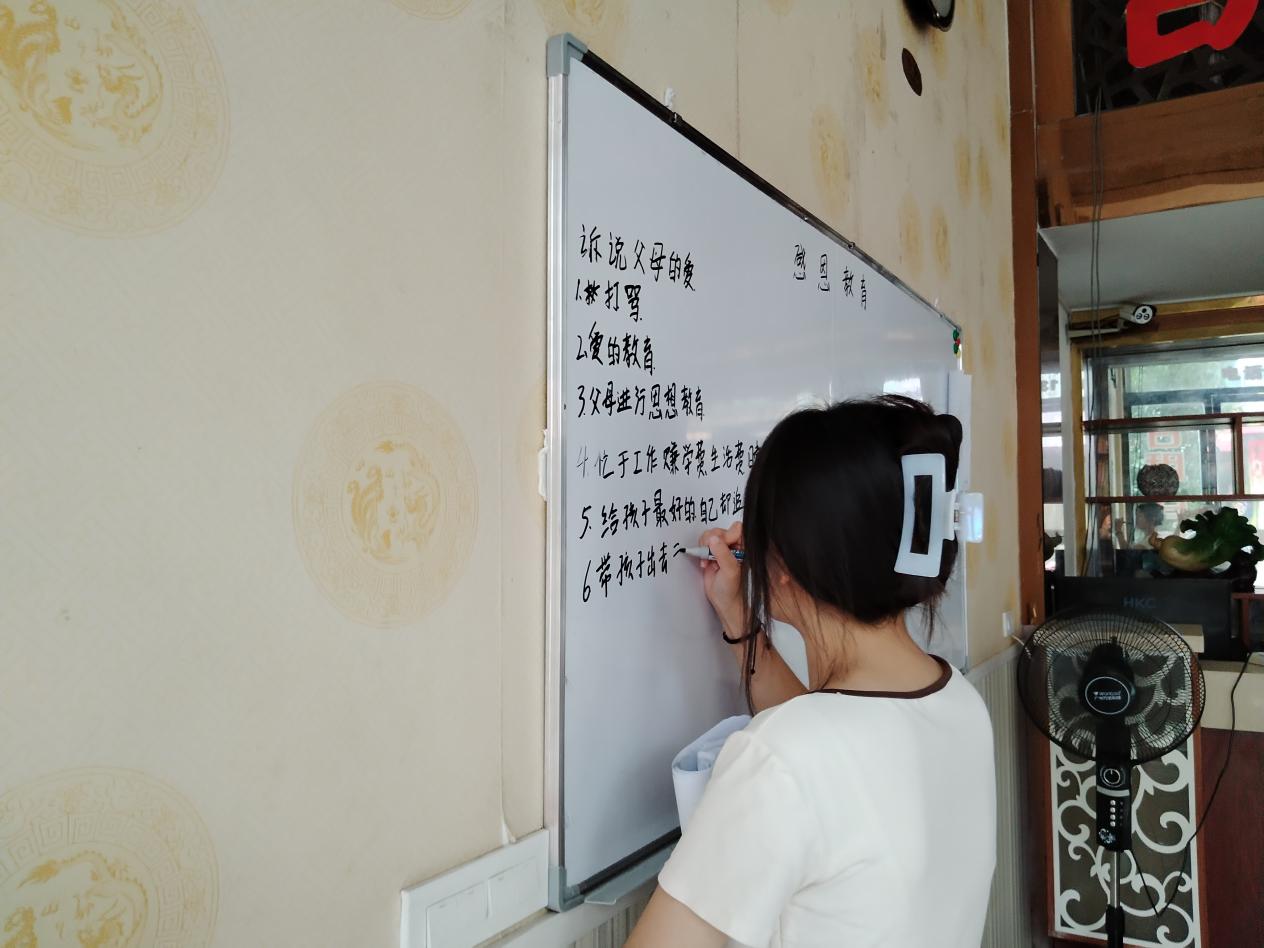 感恩教育
诉说父母的爱
1.打骂
2.爱的教育
3.父母进行思想教育
4.忙于工作赚学费生活费
5.给孩子最好的自己却
6带孩子出去
HKC